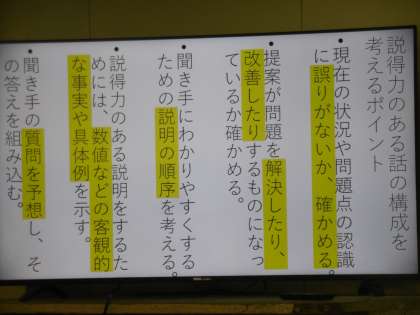 説得力のある話の構成を
考えるポイント
●現在の状況や問題点の認識
に誤りがないか、確かめる。
●提案が問題を解決したり、
改善したりするものになっ
ているか確かめる。
●聞き手にわかりやすくする
ための説明の順序を考える。
●説得力のある説明をするた
めには、数値などの客観的
な事実や具体例を示す。
●聞き手の質問を予想し、そ
の答えを組み込む。